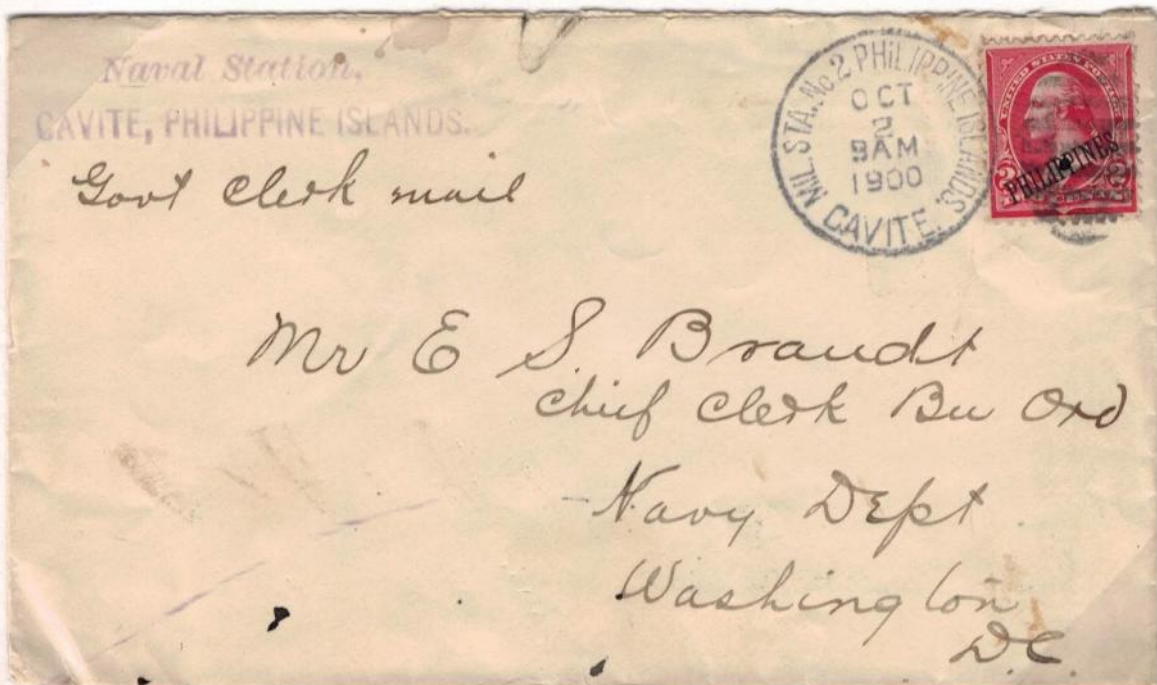 Naval Station.
CAVITE, PHILIPPINE ISLANDS.
Govt Clerk mail
MIL. STA. No 2 PHILIPPINE ISLANDS.
OCT
2
9AM
1900
CAVITE.
UNITED STATES POSTAGE
PHILIPPINES
2 2
Mr E S. Brandt
Chief Clerk Bu Ord
Navy Dept
Washington
D.C.